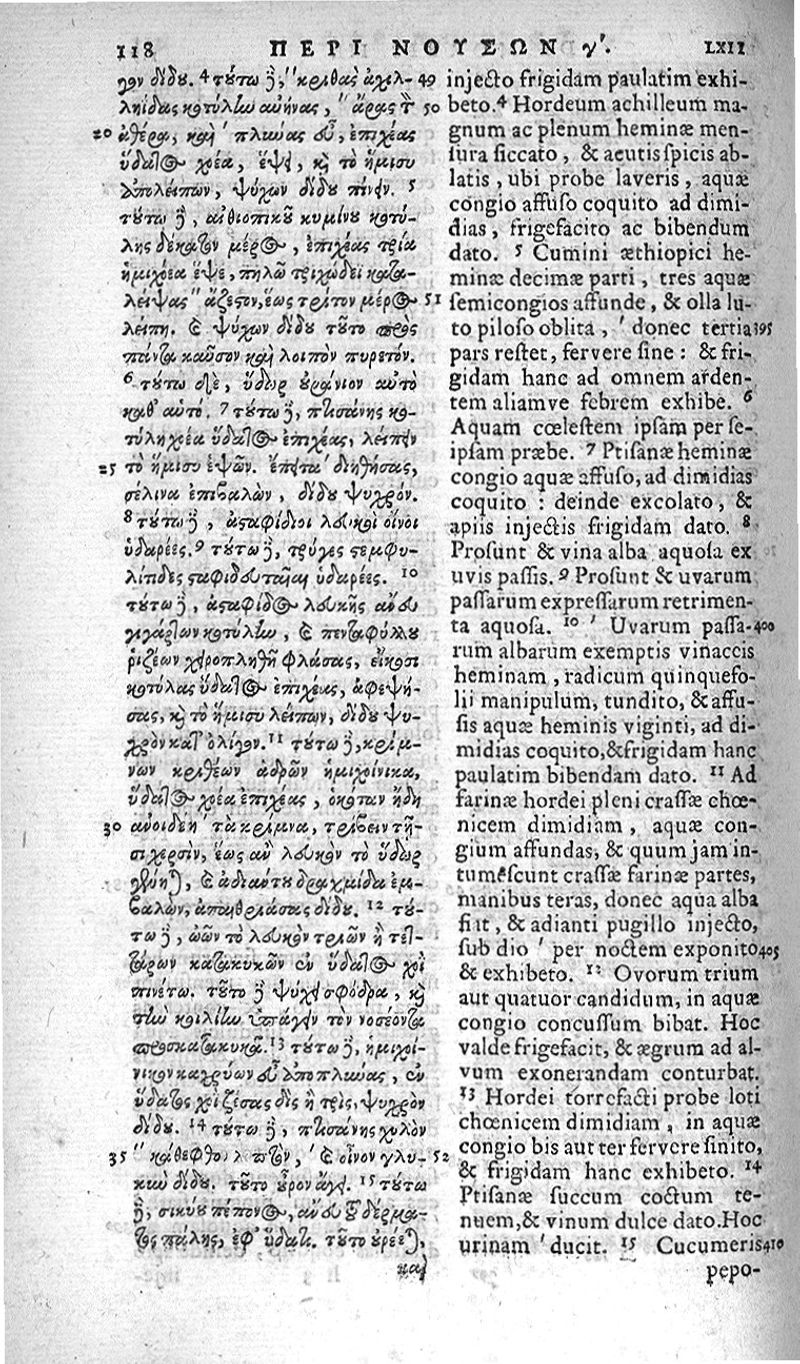 118 ΠΕΡΙ ΝΟΥΣΩΝ γ΄. LXII
γον δίδου. 4 τούτῳ δὲ, " κριθὰς ἀχιλ- 49
ληίδας κοτύλην αὐήνας, " ἄρας τ 50
20 ἀθέρα, καὶ ' πλύνας εὖ, ἐπιχέας
ὕδατος χέα, ἕψε, καὶ τὸ ἥμισυ
ἀπολείπων, ψύχων δίδου πίνειν. 5
τούτῳ δὲ, αἰθιοπικοῦ κυμίνου κοτύ-
λης δέκατον μέρος, ἐπιχέας τρία
ἡμιχόεα ἕψε, πηλῷ τριχώδει κατα-
λείψας " ἄζεσον, ἕως τρίτον μέρος 51
λείπῃ. καὶ ψύχων δίδου τοῦτο πρὸς
πάντα καῦσον καὶ λοιπὸν πυρετόν.
6 τούτῳ δὲ, ὕδωρ οὐράνιον αὐτὸ
καθ' αὑτό. 7 τούτῳ δὲ, πτισάνης κο-
τύλῃ χέα ὕδατος ἐπιχέας, λείπειν
25 τὸ ἥμισυ ἑψῶν. ἔπειτα διηθήσας,
σέλινα ἐπιβαλὼν, δίδου ψυχρόν.
8 τούτῳ δὲ, ἀσαφίδιοι λευκοὶ οἶνοι
ὑδαρέες. 9 τούτῳ δὲ, τρύγες στεμφυ-
λίτιδες ὑδαρέες. 10
τούτῳ δὲ, ἀσταφίδος λευκῆς ἄνευ
γιγάρτων κοτύλην, καὶ πενταφύλλου
ῥιζέων χειροπληθῆ φλάσας, εἴκοσι
κοτύλας ὕδατος ἐπιχέας, ἀφεψή-
σας, καὶ τὸ ἥμισυ λείπων, δίδου ψυ-
χρὸν κατ' ὀλίγον. 11 τούτῳ δὲ, κρίμ-
νων κριθέων ἁδρῶν ἡμιχοίνικα,
ὕδατος χέα ἐπιχέας, ὁκόταν ἤδη
30 ἀνοιδέῃ ' τὰ κρίμνα, τρίβειν τῇ-
σι χερσὶν, ἕως ἂν λευκὸν τὸ ὕδωρ
γένηται, καὶ ἀδιάντου δραχμίδα ἐμ-
βαλὼν, ἀπαιθριάσας δίδου. 12 τού-
τῳ δὲ, ὠῶν τὸ λευκὸν τριῶν ἢ τετ-
τάρων κατακυκῶν ἐν ὕδατος χοῒ
πινέτω. τοῦτο δὲ ψύχει σφόδρα, καὶ
τὴν κοιλίην ὑπάγειν τὸν νοσέοντα
προσκατακυκᾷ. 13 τούτῳ δὲ, ἡμιχοί-
νικον καχρύων εὖ ἀποπλύνας, ἐν
ὕδατος χοῒ ζέσας δὶς ἢ τρὶς, ψυχρὸν
δίδου. 14 τούτῳ δὲ, πτισάνης χυλὸν
35 " κάθεφθον λεπτὸν, ' καὶ οἶνον γλυ- 52
κὺν δίδου. τοῦτο οὖρον ἄγει. 15 τούτῳ
δὲ, σικύου πέπονος, ἄνευ τοῦ δέρμα-
τος πάλης, ἐφ' ὕδατι. τοῦτο οὐρέεται,
καὶ
injecto frigidam paulatim exhi-
beto. 4 Hordeum achilleum ma-
gnum ac plenum heminæ men-
sura siccato, & acutis spicis ab-
latis, ubi probe laveris, aquæ
congio affuso coquito ad dimi-
dias, frigefacito ac bibendum
dato. 5 Cumini æthiopici he-
minæ decimæ parti, tres aquæ
semicongios affunde, & olla lu-
to piloso oblita, ' donec tertia 395
pars restet, fervere sine: & fri-
gidam hanc ad omnem arden-
tem aliamve febrem exhibe. 6
Aquam cœlestem ipsam per se-
ipsam præbe. 7 Ptisanæ heminæ
congio aquæ affuso, ad dimidias
coquito: deinde excolato, &
apiis injectis frigidam dato. 8
Prosunt & vina alba aquosa ex
uvis passis. 9 Prosunt & uvarum
passarum expressarum retrimen-
ta aquosa. 10 ' Uvarum passa- 400
rum albarum exemptis vinaccis
heminam, radicum quinquefo-
lii manipulum, tundito, & affu-
sis aquæ heminis viginti, ad di-
midias coquito, & frigidam hanc
paulatim bibendam dato. 11 Ad
farinæ hordei pleni crassæ chœ-
nicem dimidiam, aquæ con-
gium affundas, & quum jam in-
tumescunt crassæ farinæ partes,
manibus teras, donec aqua alba
fiat, & adianti pugillo injecto,
sub dio ' per noctem exponito 405
& exhibeto. 12 Ovorum trium
aut quatuor candidum, in aquæ
congio concussum bibat. Hoc
valde frigefacit, & ægrum ad al-
vum exonerandam conturbat.
13 Hordei torrefacti probe loti
chœnicem dimidiam, in aquæ
congio bis aut ter fervere sinito,
& frigidam hanc exhibeto. 14
Ptisanæ succum coctum te-
nuem, & vinum dulce dato. Hoc
urinam ' ducit. 15 Cucumeris 410
pepo-